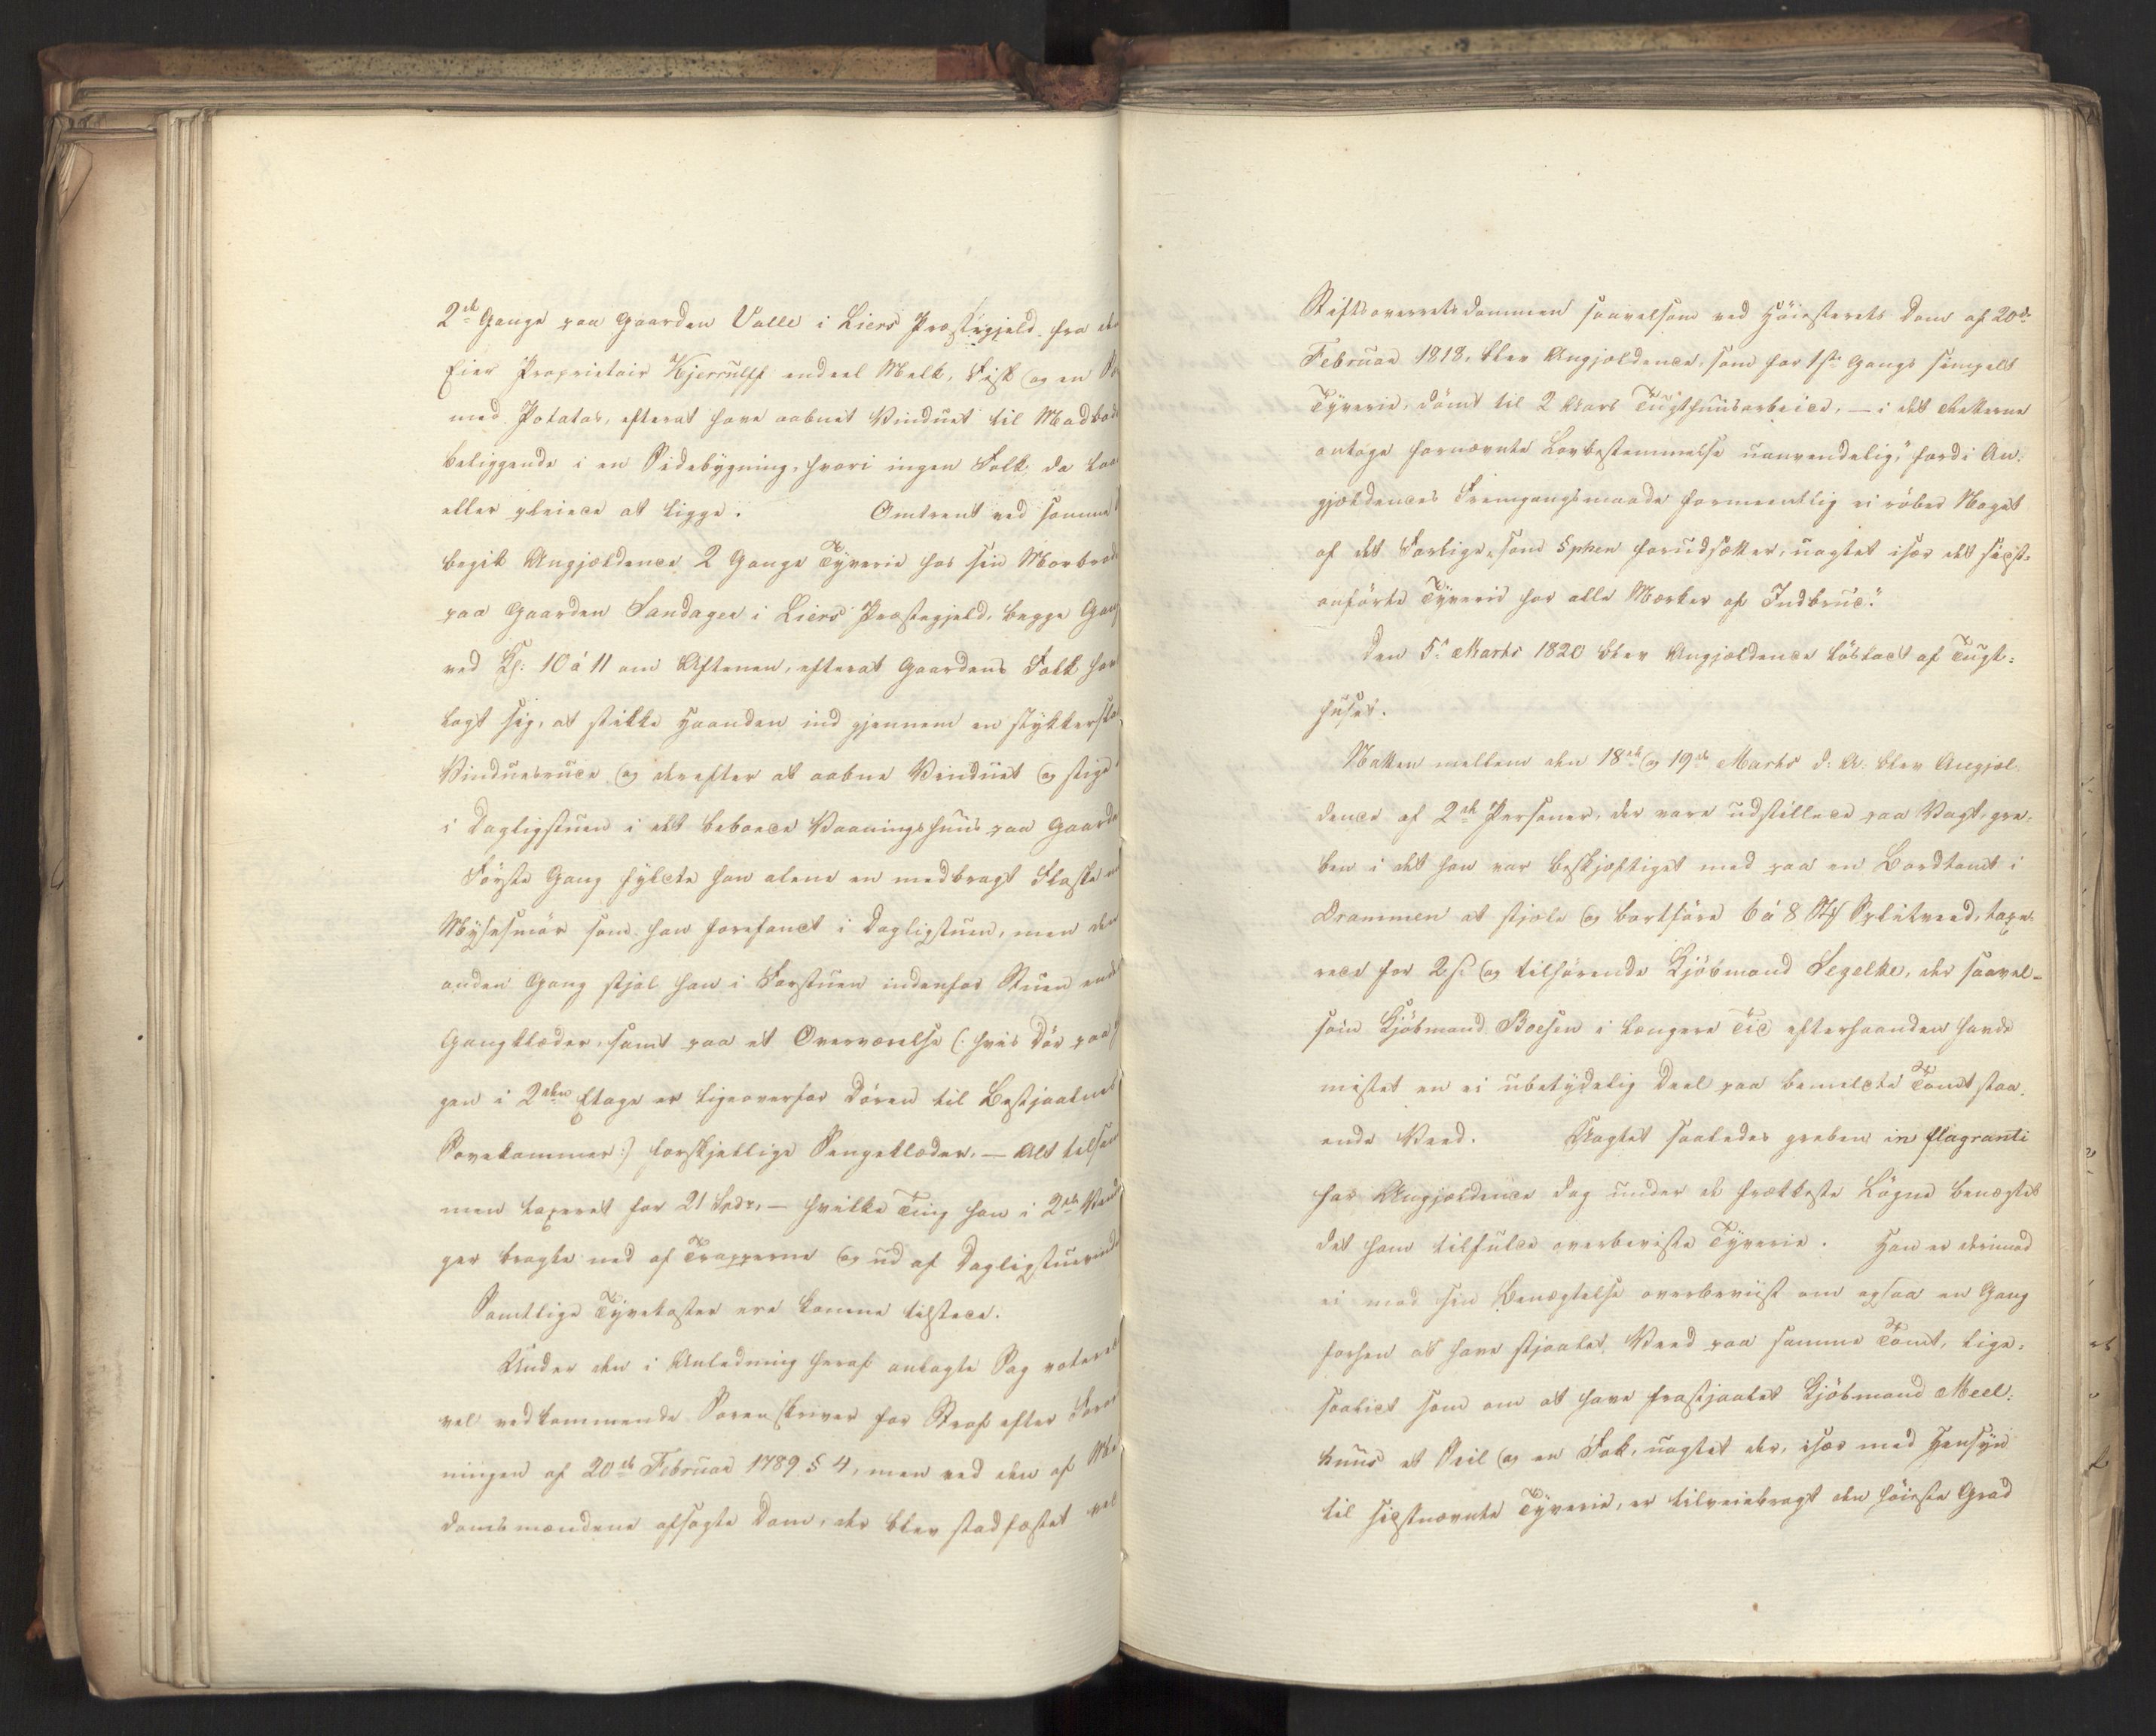 2de Gange paa Gaarden Valle i Liers Præstegjeld fra den
Eier Proprietair Kjerrulff endeel Melk, Fisk og en
med Potatos, efterat have aabnet Vinduet til Madbod
beliggende i en Sidebygning, hvori ingen Folk da laae
eller pleiede at ligge. Omtrent ved samme
begik Angjældende 2 Gange Tyverie hos sin Morbrod
paa Gaarden Landager i Liers Præstegjeld, begge Gan
ved Kl: 10 á 11 om Aftenen, efterat Gaardens Folk hav
lagt sig, at stikke Haanden ind gjennem en
Vinduesrude og derefter at aabne Vinduet og stige
i Dagligstuen i det beboede Vaaningshuus paa Gaarde
Første Gang fyldte han alene en medbragt Flaske
Mysesmør som han forefandt i Dagligstuen, men den
anden Gang stjal han i Forstuen indenfor Stuen ende
Gangklæder, samt paa et Overværelse (: hvis Dør paa
gen i 2den Etage er ligeoverfor Døren til Bestjaalnes
Sovekammer :) forskjellige Sengeklæder, — Alt tilsam
men taxeret for 21 Spdr, — hvilke Ting han i 2de Vend
ger bragte ned af Trapperne og ud af Dagligstuevind
Samtlige Tyvekoster ere komne tilstede.
Under den i Anledning heraf anlagte Sag voteret
vel vedkommende Sorenskriver for Straf efter Foror
ningen af 20de Februar 1789 § 4, men ved den af Me
domsmændene afsagte Dom, der blev stadfæstet vel
Stiftsoverretsdommen saavelsom ved Høiesterets Dom af 20de
Februar 1818, blev Angjældende, som for 1ste Gangs simpelt
Tyverie, dömt til 2 Aars Tugthuusarbeide, — i det Retterne
antoge fornævnte Lovbestemmelse uanvendelig, "fordi An-
gjældendes Fremgangsmaade formeentlig ei röbed Noget
af det Farlige, som §phen forudsætter, uagtet især det sidst-
anførte Tyverie har alle Mærker af Indbrud."
Den 5te Marts 1820 blev Angjældende løsladt af Tugt-
huset.
Natten mellem den 18de og 19de Marts d: A: blev Angjæl-
dende af 2de Personer, der vare udstillede paa Vagt, gre-
ben i det han var beskjæftiget med paa en Bordtomt i
Drammen at stjæle og bortføre 6 á 8 Splitveed, taxe-
rede for 2 ß og tilhørende Kjöbmand Segelke, der saavel-
som Kjöbmand Boesen i længere Tid efterhaanden havde
mistet en ei ubetydelig Deel paa bemeldte Tomt staa-
ende Veed. Uagtet saaledes greben in flagranti
har Angjældende dog under de frækkeste Løgne benægtet
det ham tilfulde overbeviste Tyverie. Han er derimod
ei mod sin Benægtelse overbeviist om ogsaa en Gang
forhen at have stjaalet Veed paa samme Tomt, lige-
saalidt som om at have frastjaalet Kjöbmand Meel-
huus et Seil og en Fok, uagtet der, især med Hensyn
til sidstnævnte Tyverie, er tilveiebragt den høieste Grad